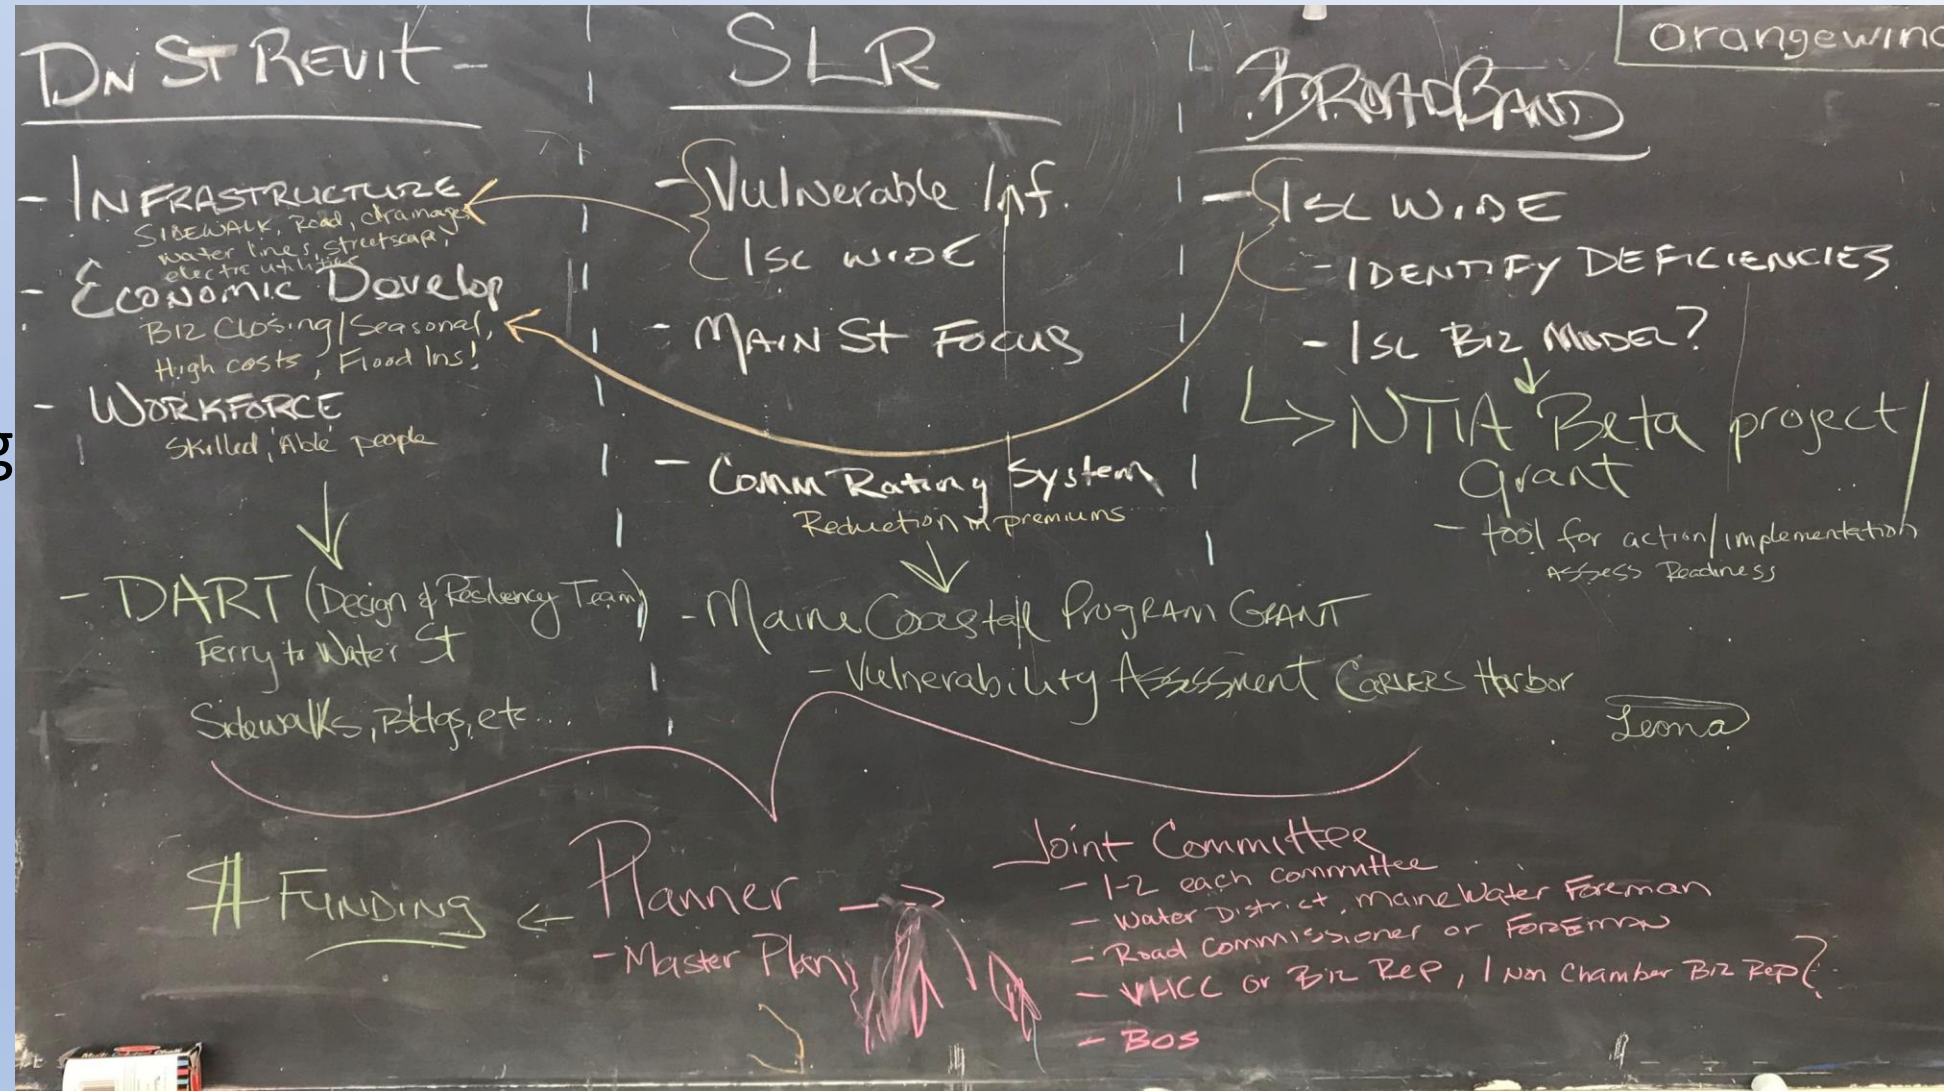 DN ST REVIT -
- INFRASTRUCTURE
SIDEWALK, Road, drainage,
water lines, streetscape,
electric utilities
- ECONOMIC Develop
BIZ Closing/Seasonal,
High costs, Flood Ins!
- WORKFORCE
Skilled, Able people
- DART (Design & Resiliency Team)
Ferry to Water St
Sidewalks, Bldgs, etc...
SLR
- Vulnerable Inf.
ISL WIDE
- MAIN St Focus
- Comm Rating System
Reduction in premiums
- Maine Coastal PROGRAM GRANT
- Vulnerability Assessment CARVERS Harbor
BROADBAND
- ISL WIDE
- IDENTIFY DEFICIENCIES
- ISL BIZ MODEL?
NTIA Beta project
Grant
- tool for action/implementation
Assess Readiness
orangewin
Leona
$ FUNDING
Planner
- Master Plan
Joint Committee
- 1-2 each committee
- Water District, Maine Water Foreman
- Road Commissioner or FOREMAN
- VHCC or Biz Rep, 1 Non Chamber Biz Rep?
- BOS
g